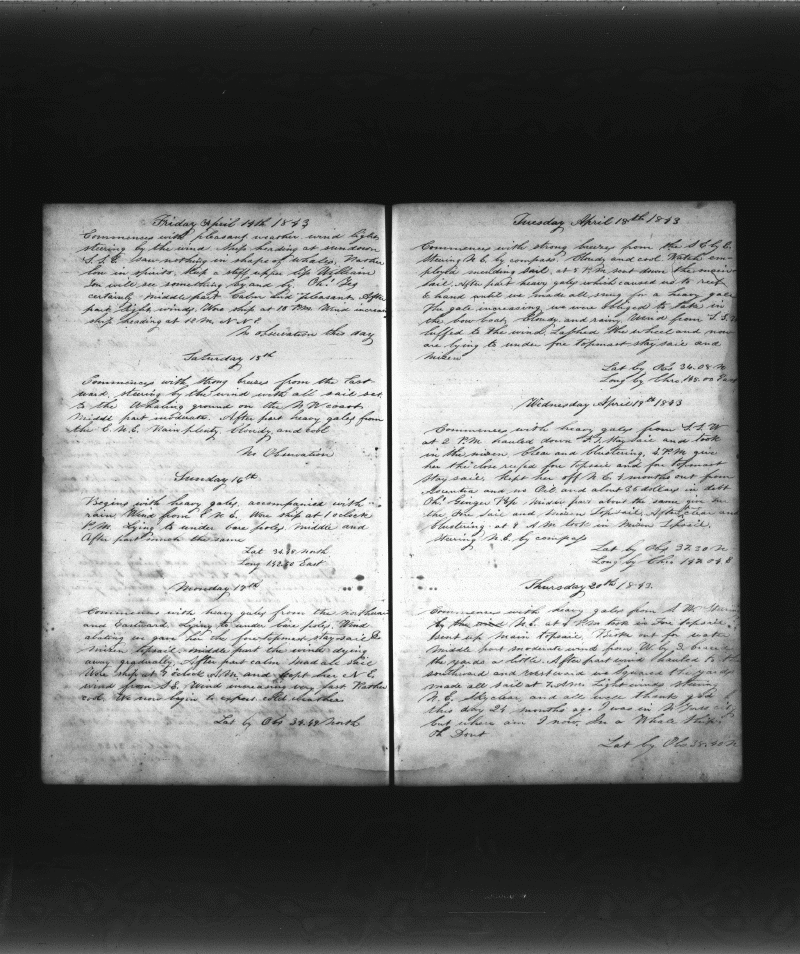 Friday April 14th 1843
Commences with pleasant weather wind light
steering by the wind Ship heading at sundown
S.S.E. Saw nothing in shape of whales, Rather
low in spirits. Keep a stiff upper lip William
You will see something by and by Oh! Yes
certainly Middle part Calm and pleasant. After
part light winds. Wore ship at 10 P.M. Wind increas
ship heading at 12 M. N.N.E
No observation this day
Saturday 15th
Commences with strong breezes from the East
ward, steering by the wind with all sail set
to the Whaling ground on the N W coast
Middle part moderate. After part heavy gales from
the E.N.E. Rain plenty, cloudy and cool
No Observation
Sunday 16th
Begins with heavy gales, accompanied with
rain, Wind from E.N.E. Wore ship at 1 oclock
P.M. Lying to under bare poles, Middle and
After part much the same
Lat 34.48 North
Long 142.40 East
Monday 17th
Commences with heavy gales from the northward
and Eastward. Lying to under bare poles. Wind
abating in gave her the fore topmast stay sail &
mizen topsail middle part the wind dying
away gradually. After part calm Mad all sail
Wore ship at oclock A.M. and kept her N E
wind from S.E. Wind increasing very fast Rather
cold. We now begin to expect cold weather
Lat by Obs 34.49 North
Tuesday April 18th 1843
Commences with strong breezes from the S.E. by E.
Steering N.E. by compass. Cloudy and cool Watch em-
ployed mending sail, at 5 P.M. sent down the main
sail. After part heavy gales which caused us to reef
& hand until we made all snug for a heavy gale
The gale increasing we were obliged to take in
the bow boat, Cloudy and rainy Wind from S.S.
luffed to the wind. Lashed the wheel and now
are lying to under fore topmast stay sail and
mizen
Lat by Obs 34.08 N
Long by Chro 145.00 East
Wednesday April 19th 1843
Commences with heavy gales from S.S.W
at 2 P.M. hauled down F.T. Stay sail and took
in the mizen Clear and blustering. 4 P.M. give
her the close reefed fore topsail and fore topmast
stay sail. Kept her off N.E. 4 months out from
and no Oil and about 85 dollars in debt
Oh! Ginger Pop Middle part about the same give her
the Fore Sail and Mizen Topsail. After clear and
blustering. at 8 A M lost in Mizen Topsail.
Steering N.E. by compass
Lat by Obs 37.30 N
Long by Chro 147.04 E
Thursday 20th 1843.
Commences with heavy gales from S.W. Steering
by the wind N.E. at 5 P.M. took in Fore topsail
Bent up Main topsail. Broke out for water
Middle part moderate wind from W. by S. braced
the yards a little. After part wind hauled to the
southward and westward we squared the yards
made all sail at 7 A.M. Light winds steering
N.E. Sky clear and all well thank god
this day 24 months ago I was in N York city
but where am I now, In a Whale Ship
Oh Dont
Lat by Obs 38.40 N